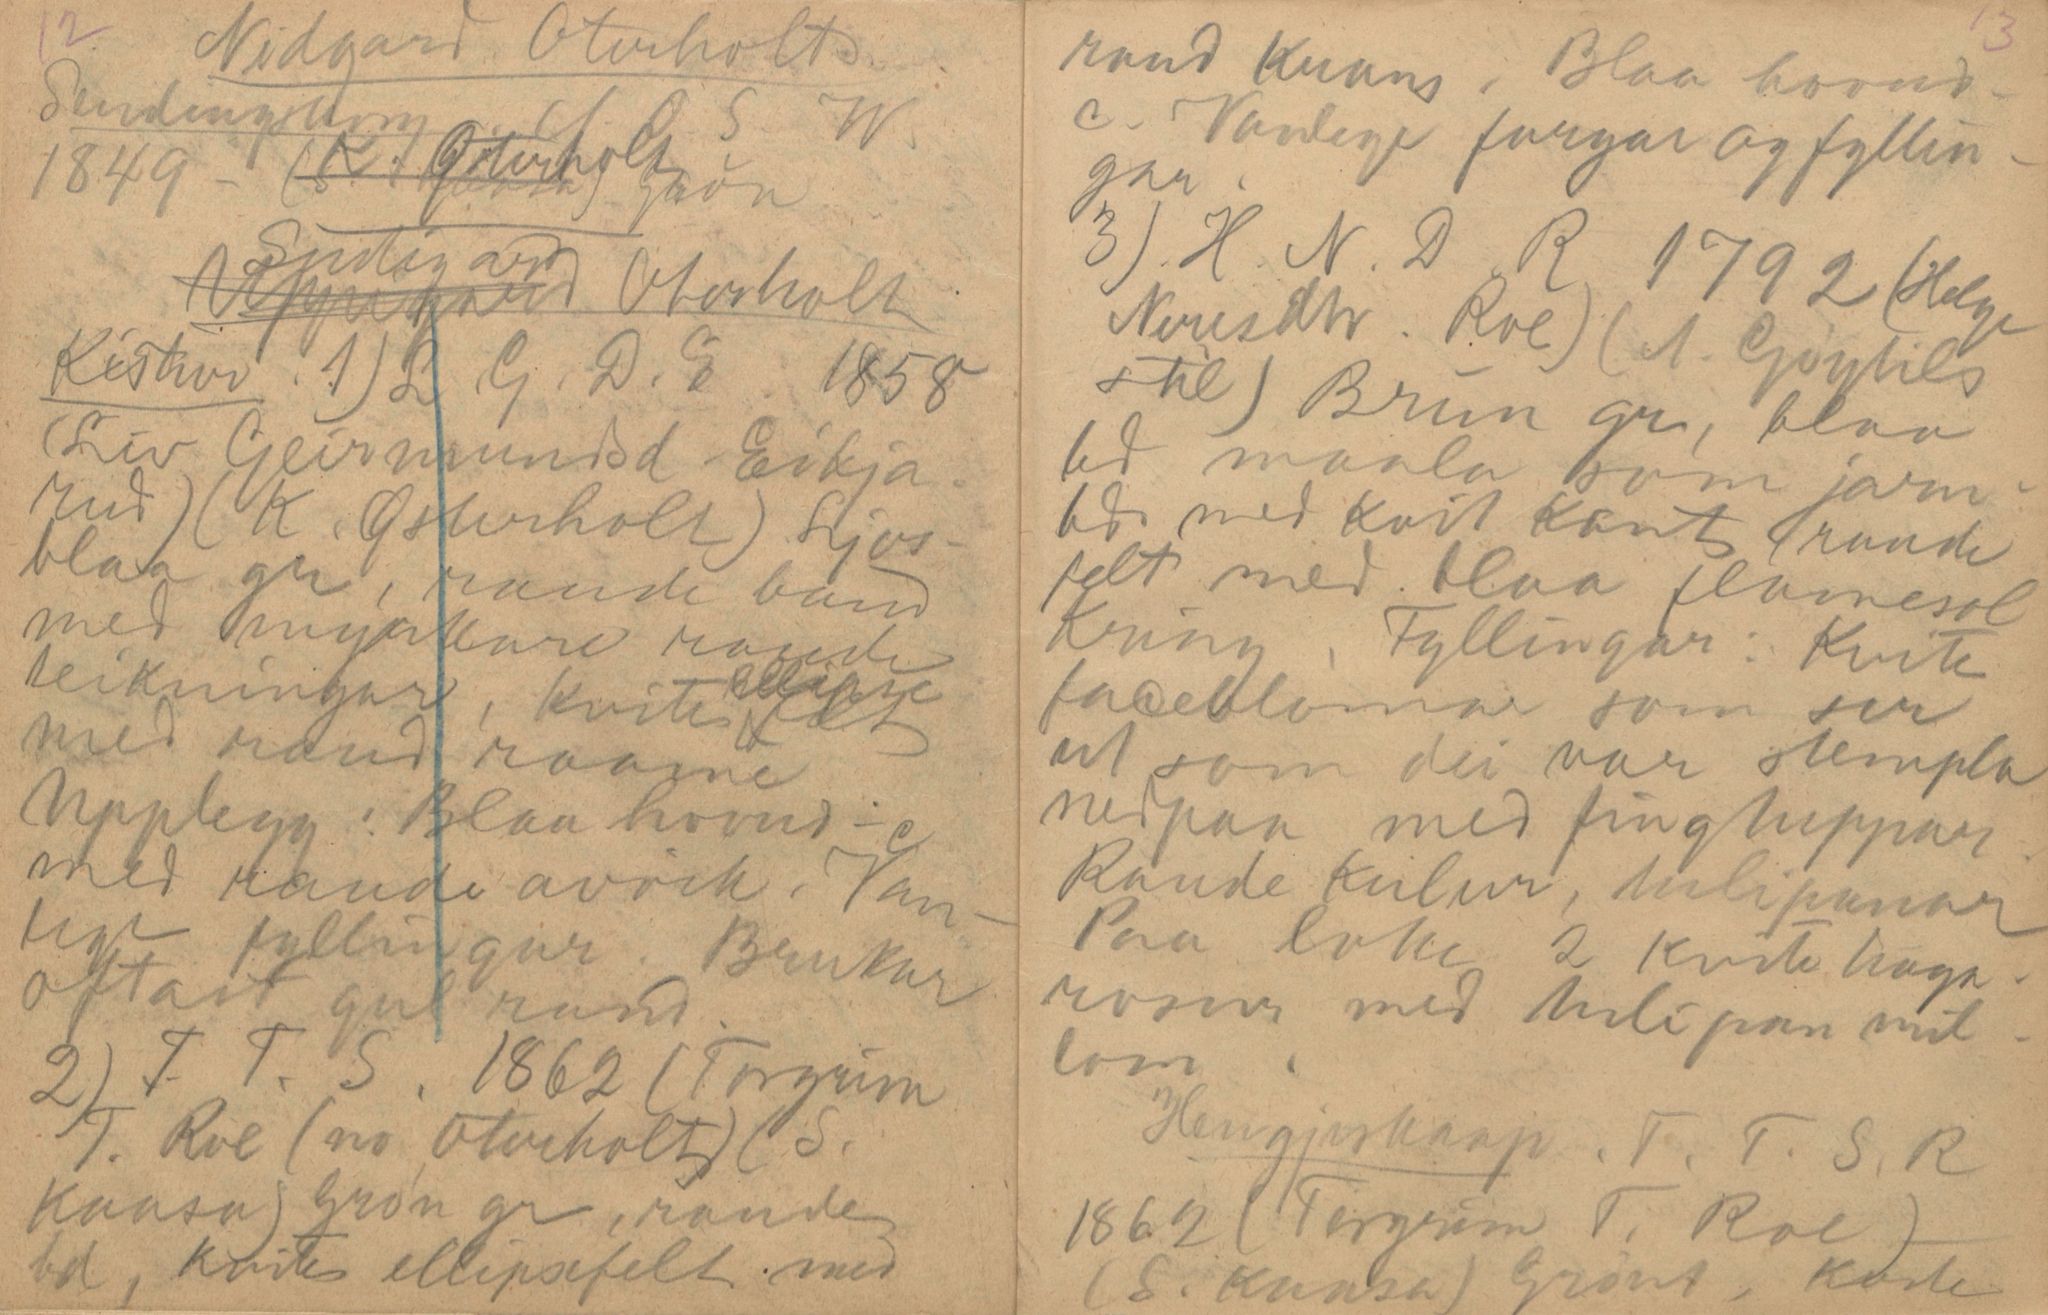 12
Nidgard Oterholt.
Sendingskrin. A. O. S. W.
1849 - (K. Østerholt) Grøn
Sudigard
Uppigard Oterholt
Kistur. 1) L G. D. E. 1858
(Liv Geirmundsd Eikja-
rud) (K. Østerholt) Ljos-
blaa gr, raude band
med myrkare raude
teikningar, kvite ellipse
med raud raame
Upplegg: Blaa hovud-c
med raude avöck. Van-
lege fyllingar. Brukar
oftast gul rand.
2) T. T. S. 1862 (Torgrim
T. Roe (no Oterholt) (S.
Kaasa) Grön gr, raude
bd, kvite ellipsefelt med
13
raud Krans, Blaa hovud-
c. Vanlege fargar og fyllin-
gar.
3). H. N. D. R 1792 (Helge
Neresdtr. Roe) (A. Gøytils
stil) Brun gr, blaa
bd maala som jarn-
bd med kvit kant, raude
felt med blaa flamesol
kring, Fyllingar: Kvite
faceblomar som ser
ut som dei var stempla
nedpaa med fingtuppar.
Raude kulur, tulipanar
Paa loke 2 kvite haga-
rosur med tulipan mil-
lom.
Hengjeskaap. T. T. S. R
1862 (Torgrim T. Roe)
(S. Kaasa) Grönt, kvite